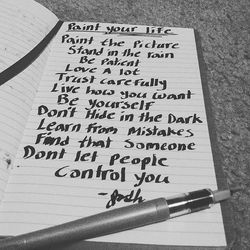 Paint your life
Paint the Picture
Stand in the rain
Be Patient
Love A lot
Trust carefully
Live how you want
Be yourself
Don't Hide in the Dark
Learn from Mistakes
Find that Someone
Dont let People
Control you
-Josh